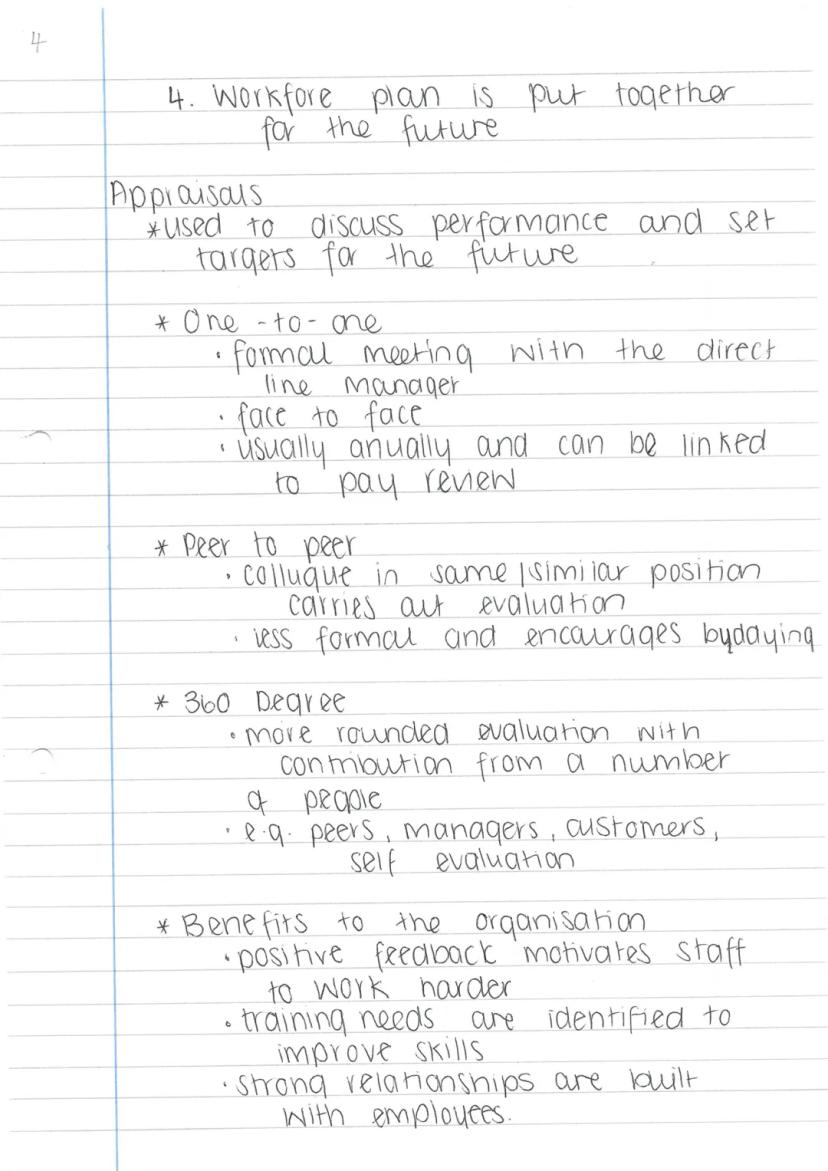 4
4. Workfore plan is put together
for the future
Appraisals
*used to discuss performance and set
targets for the future
* One -to- one
• formal meeting with the direct
line manager
• face to face
• usually anually and can be linked
to pay review
* Peer to peer
• collugue in same/similar position
carries out evaluation
• less formal and encourages bydaying
* 360 Degree
• more rounded evaluation with
contribution from a number
of people
• e.g. peers, managers, customers,
self evaluation
* Benefits to the organisation
• positive feedback motivates staff
to work harder
• training needs are identified to
improve skills
• strong relationships are built
with employees.